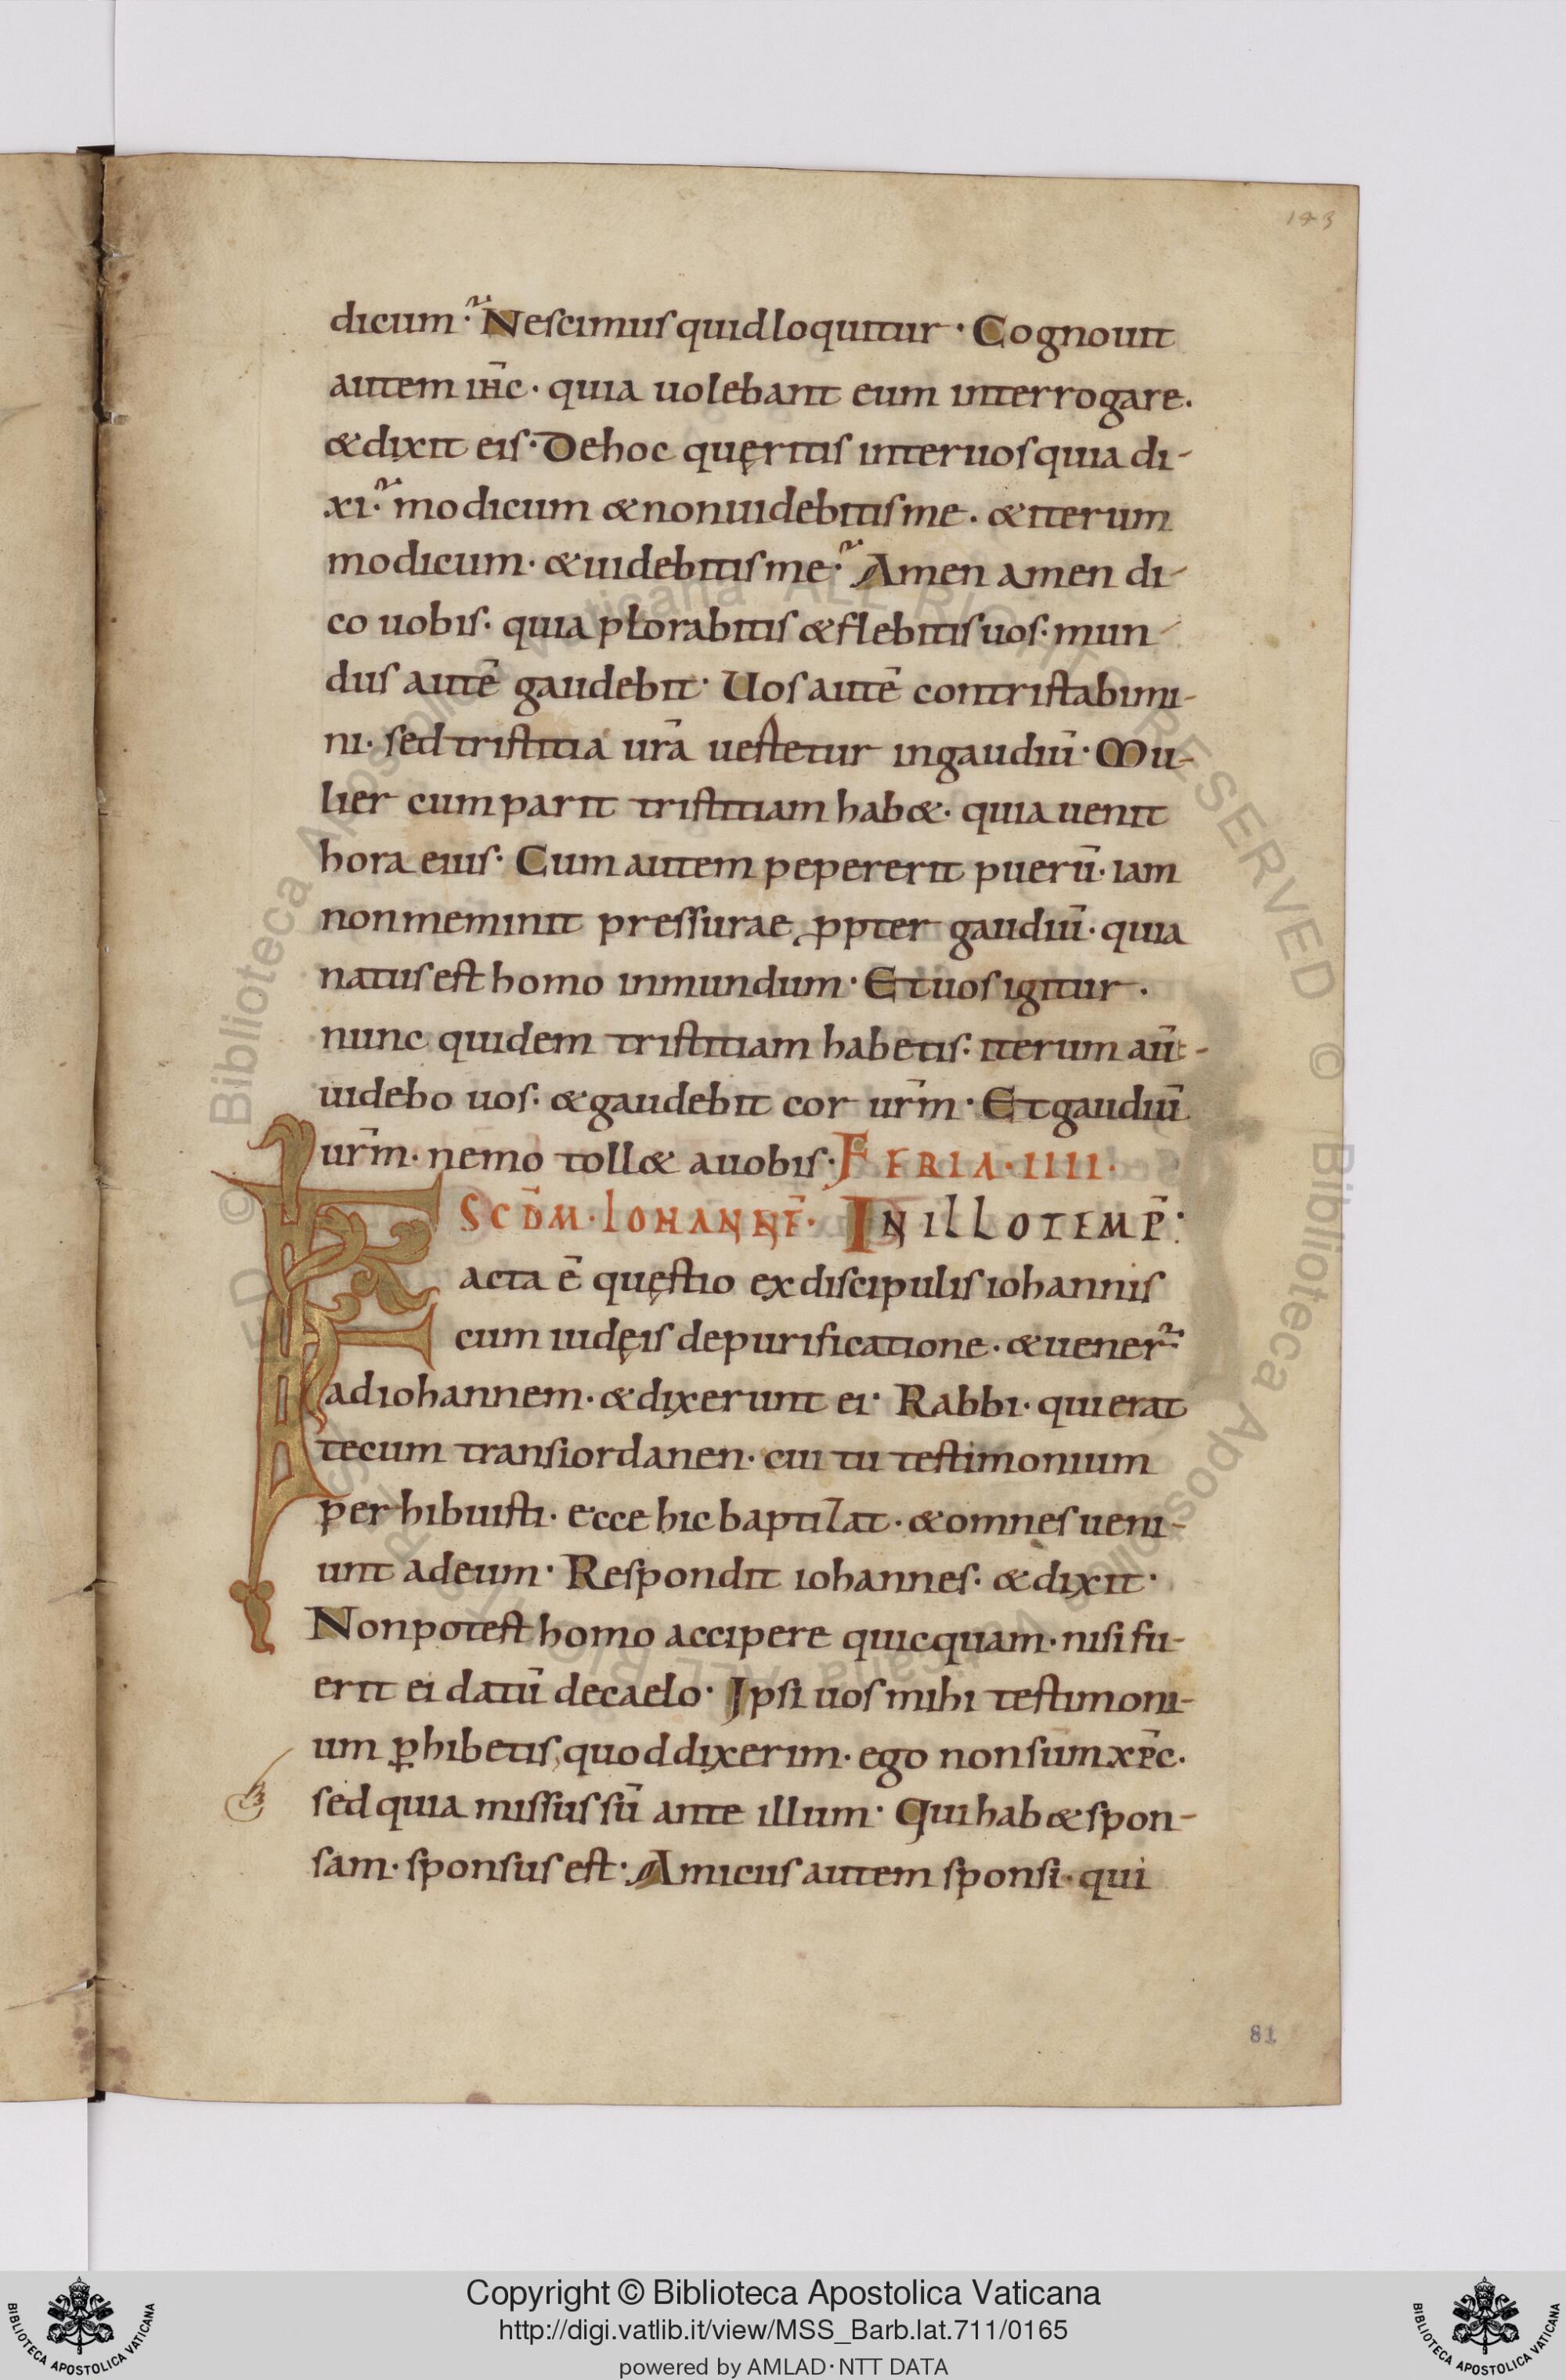 143
dicum· Nescimus quid loquitur· Cognouit
autem ih̅c· quia uolebant eum interrogare·
& dixit eis· De hoc quęritis inter uos quia di-
xi· modicum & non uidebitis me· & iterum
modicum· & uidebitis me· Amen amen di-
co uobis· quia plorabitis & flebitis uos· mun-
dus autē gaudebit· Uos autē contristabimi-
ni· sed tristitia ur̄a uertetur in gaudiū· Mu-
lier cum parit tristitiam hab&· quia uenit
hora eius· Cum autem pepererit puerū· iam
non meminit pressurae ꝓpter gaudiū· quia
natus est homo in mundum· Et uos igitur·
nunc quidem tristitiam habetis· iterum aū-
uidebo uos· & gaudebit cor ur̄m· Et gaudiū
ur̄m· nemo toll& a uobis· FERIA· IIII·
SCD̄M· IOHANNĒ· IN ILLO TEMP̄·
Facta ē quęstio ex discipulis iohannis
cum iudęis de purificatione· & uener̄
ad iohannem· & dixerunt ei· Rabbi· qui erat
tecum trans iordanen· cui tu testimonium
perhibuisti· ecce hic baptizat· & omnes ueni-
unt ad eum· Respondit iohannes· & dixit·
Non potest homo accipere quicquam· nisi fu-
erit ei datū de caelo· Ipsi uos mihi testimoni-
um ꝑhibetis, quod dixerim· ego non sum xp̄c·
sed quia missus sū ante illum· Qui hab& spon-
sam· sponsus est· Amicus autem sponsi· qui
81
Copyright © Biblioteca Apostolica Vaticana
http://digi.vatlib.it/view/MSS_Barb.lat.711/0165
powered by AMLAD·NTT DATA
BIBLIOTECA APOSTOLICA VATICANA
BIBLIOTECA APOSTOLICA VATICANA